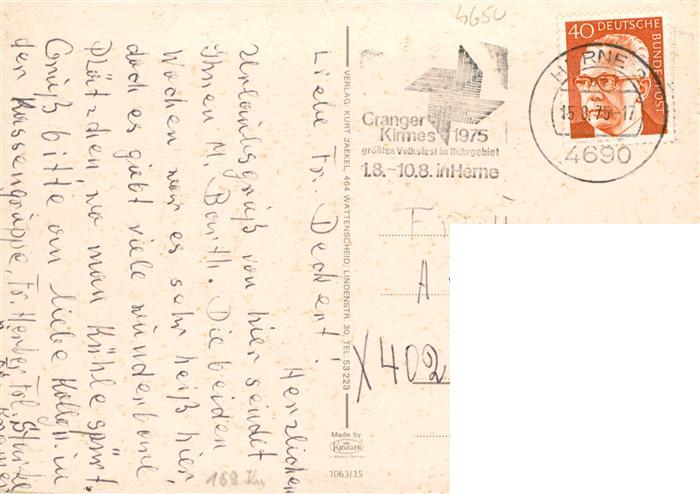 Liebe Fr. Deckert!
Herzlichen
Urlaubsgruß von hier sendet
Ihnen M. Barth. Die beiden
Wochen war es sehr heiß hier,
doch es gibt viele wunderbare
Plätzchen wo man Kühle spürt.
Gruß bitte an liebe Kolleg.in
der Kassengruppe, Fr.
VERLAG: KURT JAEKEL, 464 WATTENSCHEID, LINDENSTR. 30, TEL. 53223
Made by
KRÜGER
1063/15
4650
Cranger
Kirmes 1975
größtes Volksfest im Ruhrgebiet
1.8.–10.8. in Herne
HERNE 2
4690
40 DEUTSCHE BUNDESPOST
X402